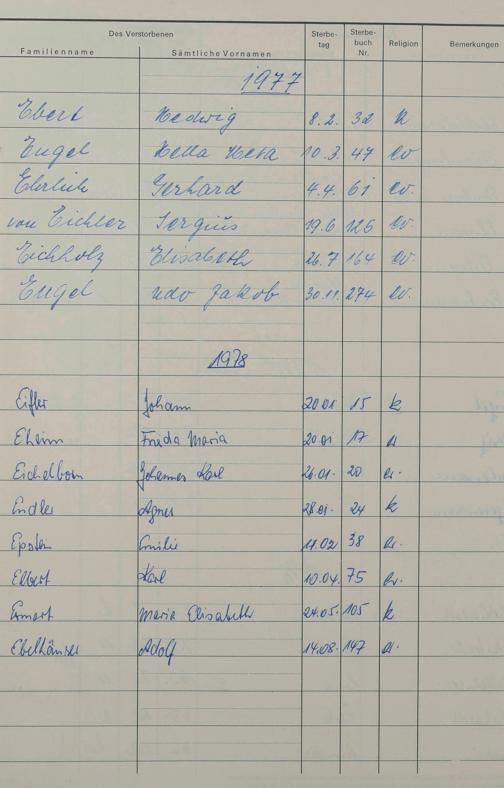 Des Verstorbenen Sterbe- Sterbe- Religion Bemerkungen
Familienname Sämtliche Vornamen tag buch Nr.
1977
Ebert Hedwig 8.2. 32 k
Engel Hella 10.3. 47 ev
Ehrlich Gerhard 4.4. 61 ev.
von Eichler Sergius 19.6 125 ev.
Eichholz Elisabeth 26.7 164 ev.
Engel Udo Jakob 30.11. 274 ev.
1978
Eifler Johann 20.01 15 k
Eheim Frieda Maria 20.01 17 ev
Eichelborn Johannes Karl 26.01. 20 ev.
Endler Agnes 28.01. 24 k
Epstein Emilie 11.02 38 ev.
Elbert Karl 10.04. 75 ev.
Ermert Maria Elisabeth 24.05. 105 k
Ebelhäuser Adolf 14.08. 147 ev.